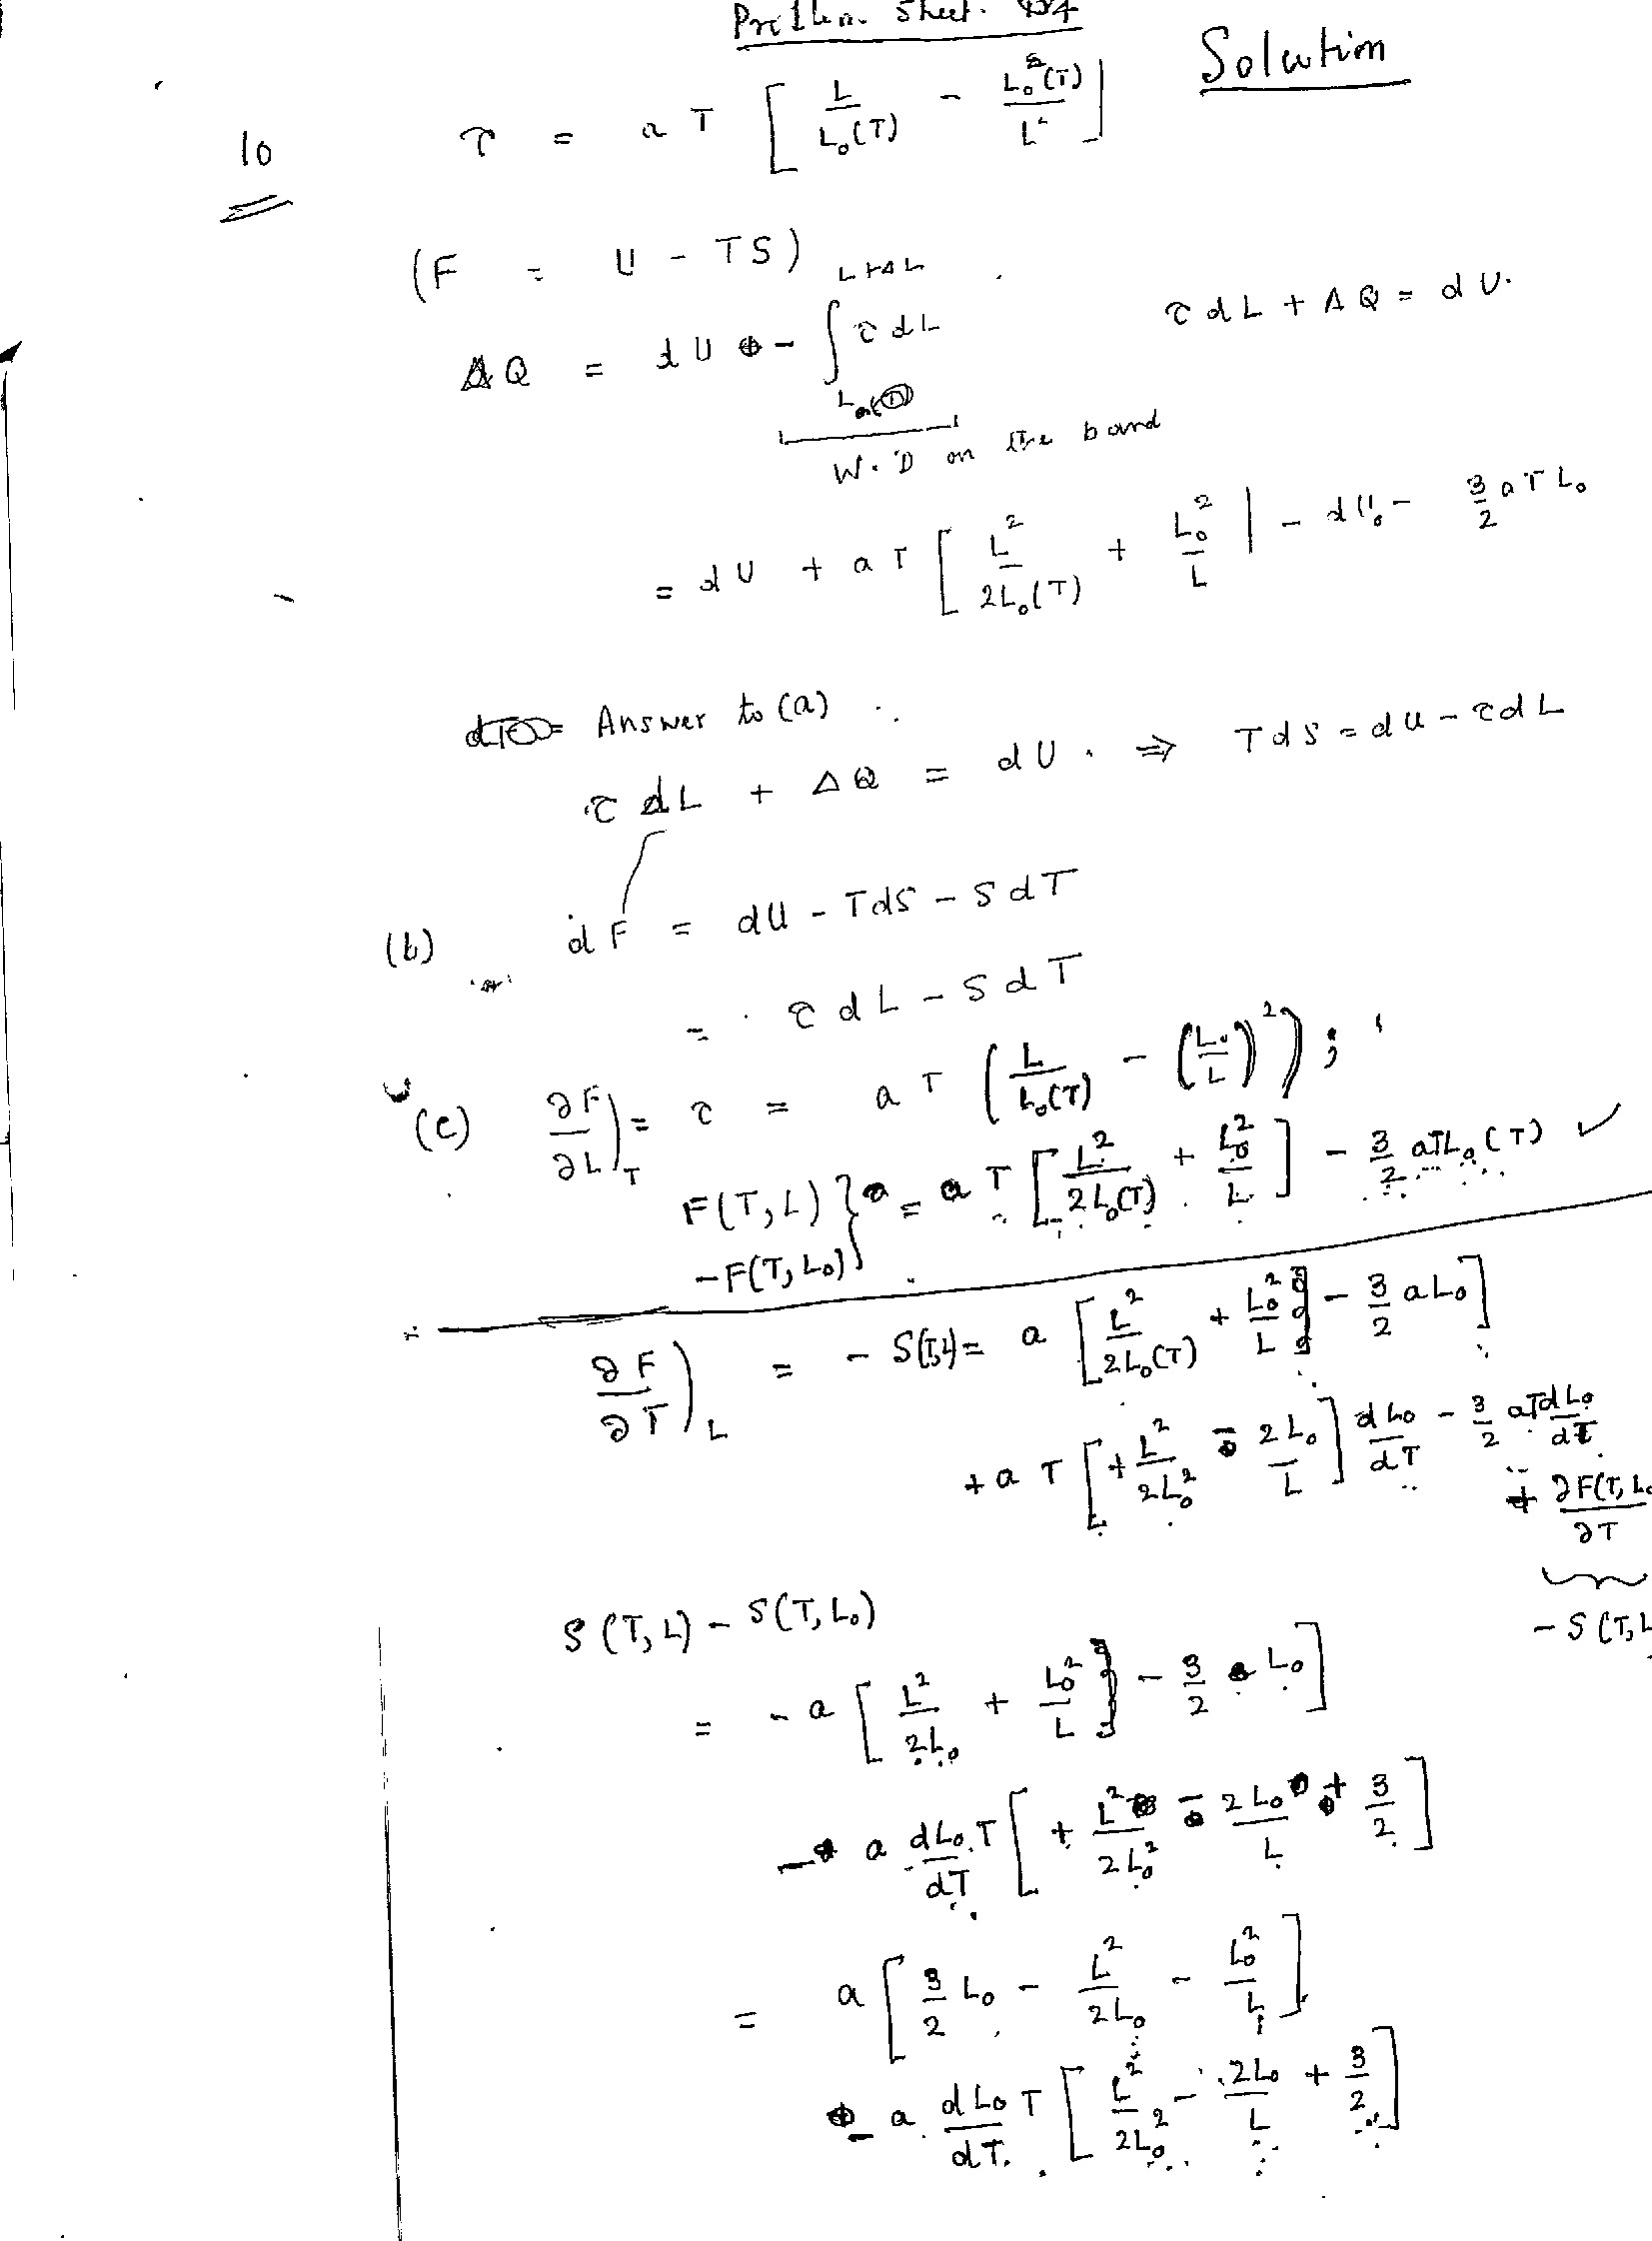 Problem Sheet.
Solution
10 τ = a T [ L/L₀(T) − L₀²(T)/L² ]
(F = U - TS)
ΔQ = dU − ∫ τ dL L+ΔL τ dL + ΔQ = dU.
W.D on the band
= dU + aT [ L²/2L₀(T) + L₀²/L ] − dU₀ − 3/2 aTL₀
Answer to (a)
τ dL + ΔQ = dU. ⇒ TdS = dU − τdL
(b) dF = dU − TdS − SdT
= τ dL − SdT
(c) ∂F/∂L)_T = τ = aT ( L/L₀(T) − (L₀/L)² );
F(T,L) − F(T,L₀) } = aT [ L²/2L₀(T) + L₀²/L ] − 3/2 aTL₀(T) ✓
∂F/∂T)_L = − S(T,L) = a [ L²/2L₀(T) + L₀²/L ] − 3/2 aL₀ ]
+ aT [ + L²/2L₀² − 2L₀/L ] dL₀/dT − 3/2 aT dL₀/dT
+ ∂F(T, L₀ / ∂T
− S(T,L
S(T,L) − S(T,L₀)
= − a [ L²/2L₀ + L₀²/L ] − 3/2 L₀ ]
− a dL₀/dT T [ + L²/2L₀² − 2L₀/L + 3/2 ]
= a [ 3/2 L₀ − L²/2L₀ − L₀²/L ]
− a dL₀/dT T [ L²/2L₀² − 2L₀/L + 3/2 ]